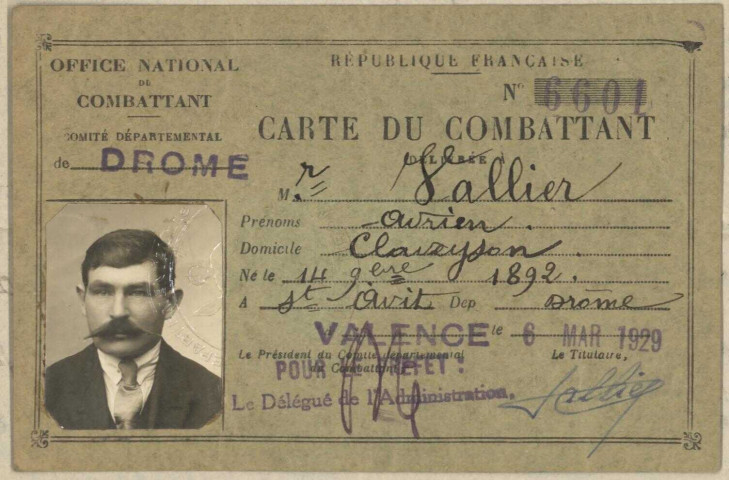 OFFICE NATIONAL
DU
COMBATTANT
COMITÉ DÉPARTEMENTAL
de DROME
RÉPUBLIQUE FRANÇAISE
N° 6601
CARTE DU COMBATTANT
DÉLIVRÉE À
M. r Vallier
Prénoms Avrien.
Domicile Claveyson.
Né le 14 9bre 1892.
A St Avit Dep Drôme
VALENCE le 6 MAR 1929
Le Président du Comité départemental
du Combattant
Le Titulaire,
POUR LE PRÉFET :
Le Délégué de l'Administration,
Vallier